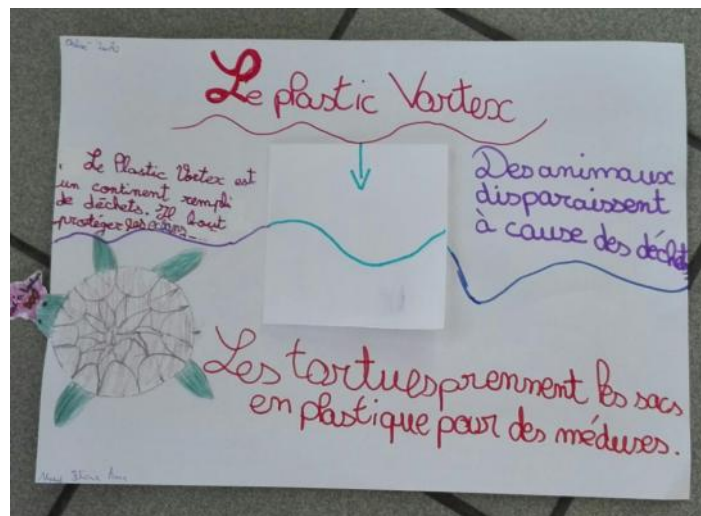 Le plastic Vortex
. Le Plastic Vortex est
un continent rempli
de déchets. Il faut
protéger les
Des animaux
disparaissent
à cause des déchets
Les tortues prennent les sacs
en plastique pour des méduses.